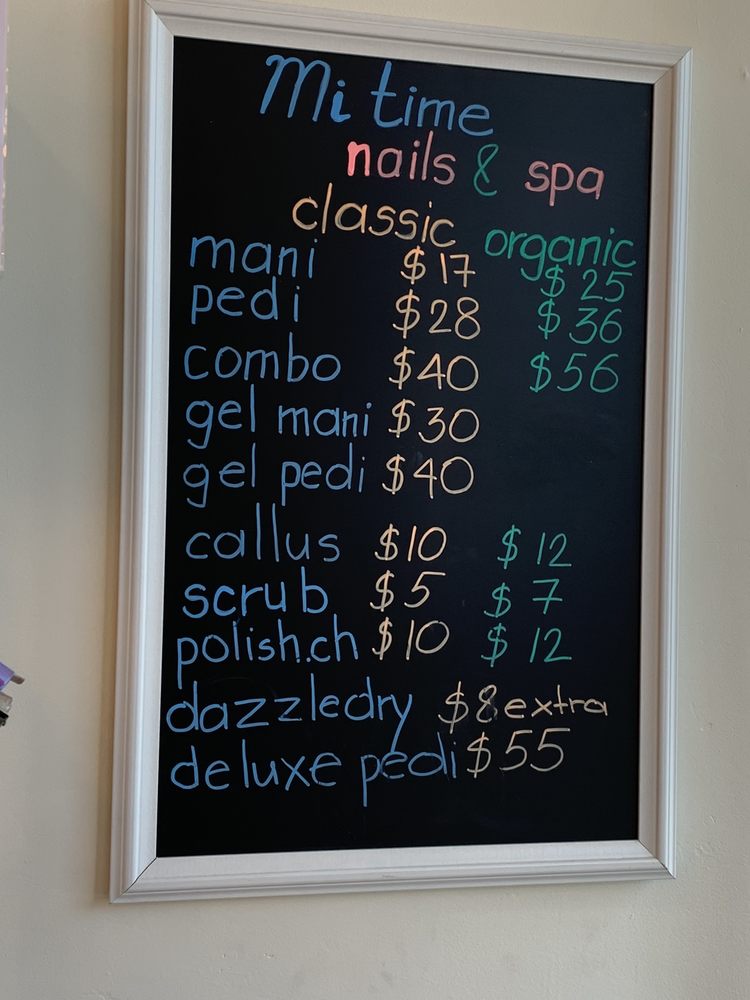 Mi time
nails & spa
classic organic
mani $17 $25
pedi $28 $36
combo $40 $56
gel mani $30
gel pedi $40
callus $10 $12
scrub $5 $7
polish.ch $10 $12
dazzledry $8 extra
deluxe pedi $55